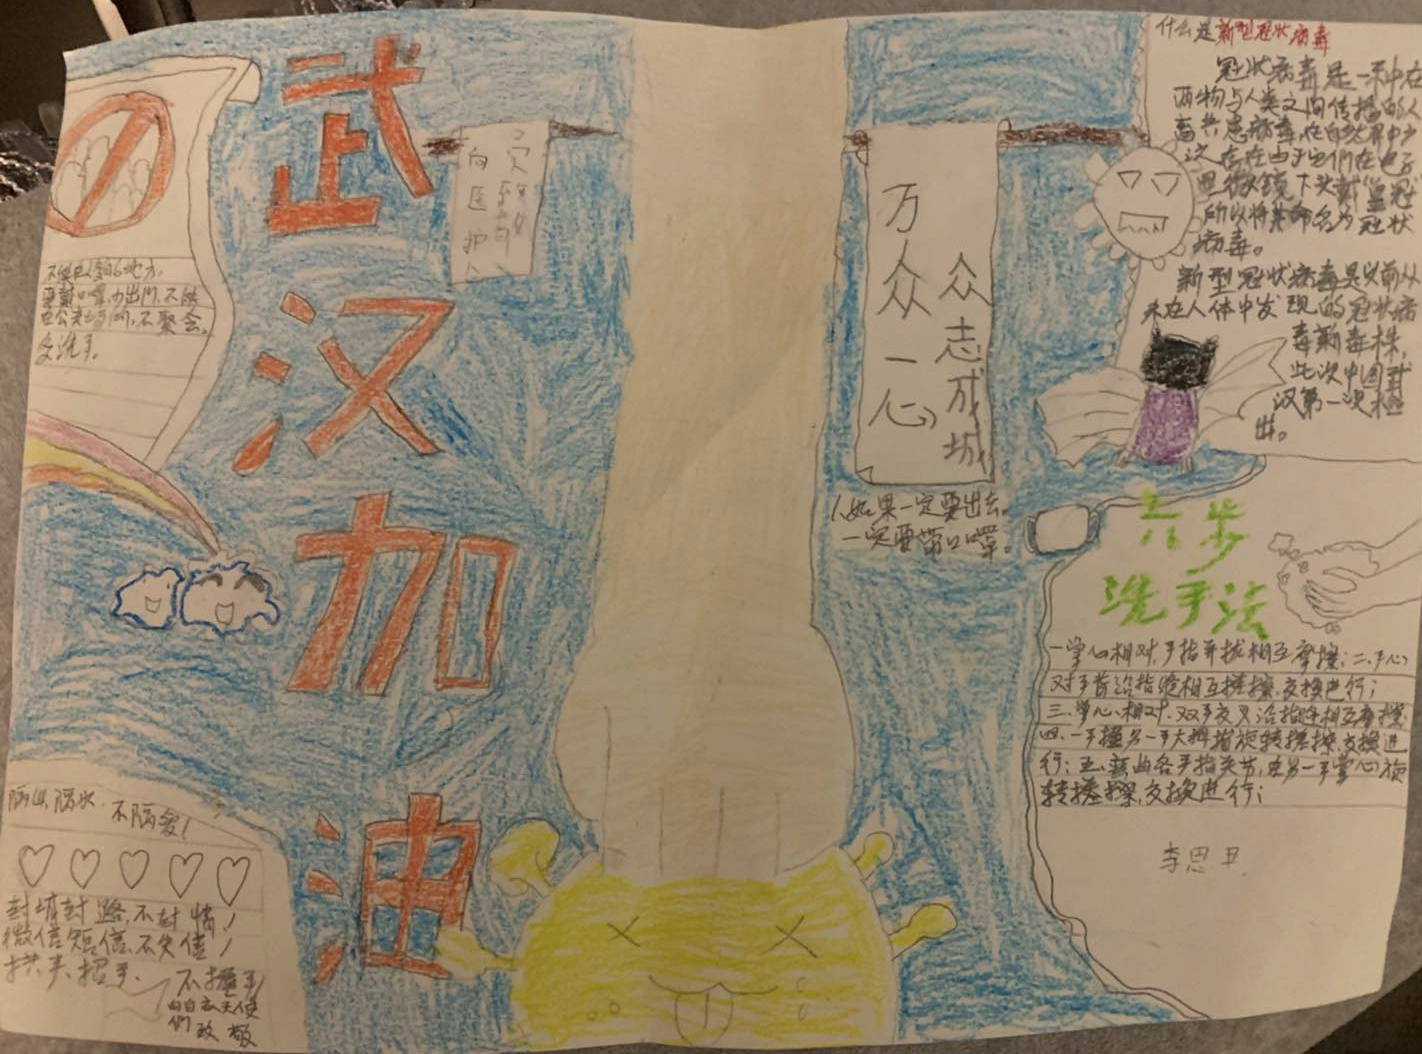 武
汉
加
油
向医护人员
致敬
不能去人多的地方,
要戴口罩,才出门,不能
在公共场所,不聚会。
多洗手。
隔山,隔水,不隔爱!
封城封路,不封情!
微信短信,不失信!
拱手、招手、
不握手!
向白衣天使
们致敬
万众一心
众志成城
人如果一定要出去。
一定要带口罩。
什么是新型冠状病毒
冠状病毒是一种在
动物与人类之间传播的人
畜共患病毒,在自然界中广
泛存在由于它们在电子
显微镜下头戴“皇冠”
所以将其命名为冠状
病毒。
新型冠状病毒是以前从
未在人体中发现的冠状病
毒新毒株,
此次中国武
汉第一次检
出。
六步
洗手法
一掌心相对,手指并拢相互摩擦;二、手心
对手背沿指缝相互搓擦,交换进行;
三、掌心相对,双手交叉沿指缝相互摩擦
四、一手握另一手大拇指旋转搓擦,交换进
行;五、弯曲各手指关节,在另一手掌心旋
转搓擦,交换进行;
李思丑